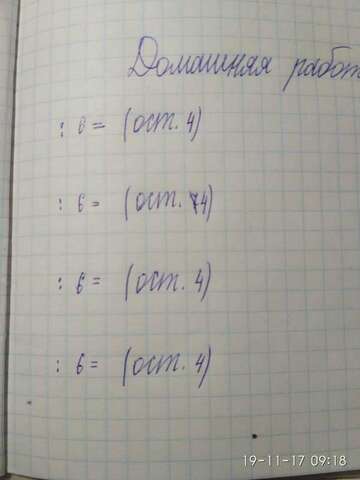 Домашняя работ
: 6 = (ост. 4)
: 6 = (ост. 4)
: 6 = (ост. 4)
: 6 = (ост. 4)
19-11-17 09:18